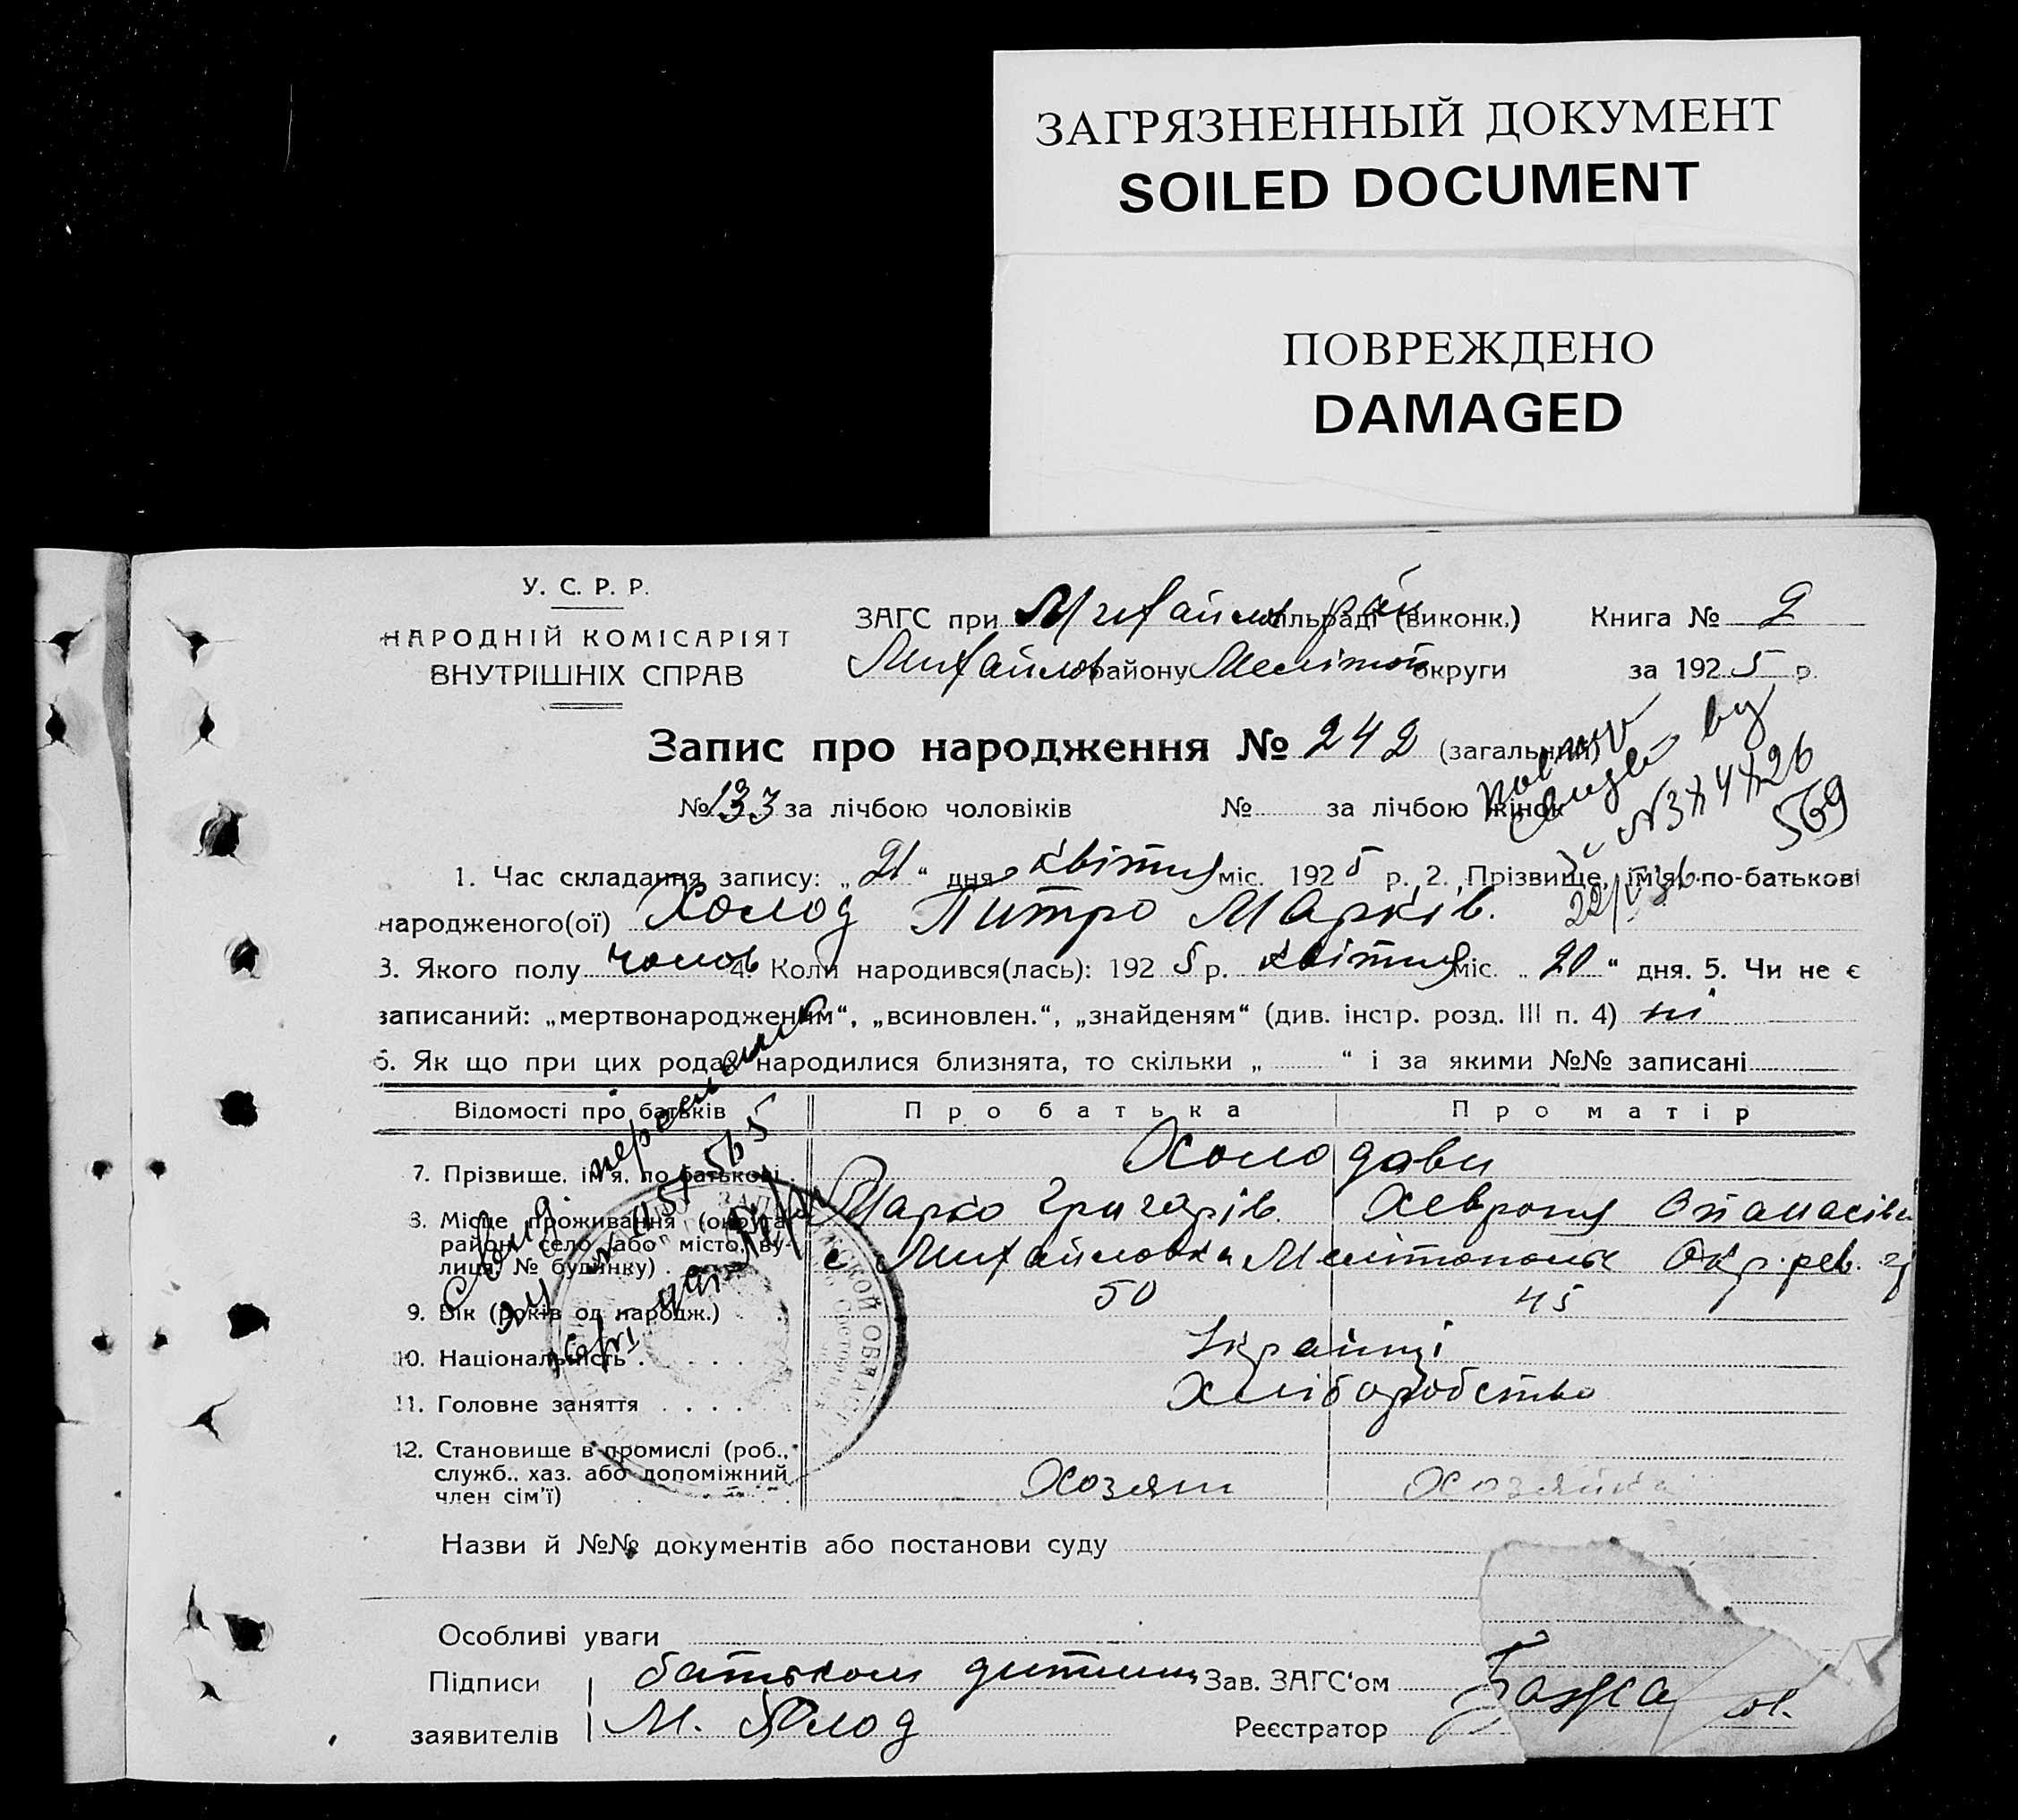 ЗАГРЯЗНЕННЫЙ ДОКУМЕНТ
SOILED DOCUMENT
ПОВРЕЖДЕНО
DAMAGED
У. С. Р. Р.
НАРОДНІЙ КОМІСАРІЯТ
ВНУТРІШНІХ СПРАВ
ЗАГС при Михайлов рай сільраді (виконк.)
Михайлов району Меліт округи
Книга № 2
за 1925 р.
Запис про народження № 242 (загальний)
№ 133 за лічбою чоловіків № за лічбою жінок
1. Час складання запису: „21“ дня квітня міс. 1925 р. 2. Прізвище, ім'я, по-батькові
народженого(ої) Холод Питро Марків.
3. Якого полу чолов 4. Коли народився(лась): 1925 р. квітня міс. „20“ дня. 5. Чи не є
записаний: „мертвонародженим“, „всиновлен.“, „знайденям“ (див. інстр. розд. III п. 4) ні
6. Як що при цих родах народилися близнята, то скільки „ “ і за якими №№ записані
Відомості про батьків Про батька Про матір
Холодови
7. Прізвище, ім'я, по батькові Марко Григорів. Хевроня Опанасівн
8. Місце проживання (округа район, село або місто, вулиця, № будинку) с Михайловка Мелітопольс Окр.
9. Вік (років од народж.) 50 45
10. Національність Українці
11. Головне заняття Хліборобство
12. Становище в промислі (роб., служб., хаз. або допоміжний член сім'ї) Хозяин Хозяйка
Назви й №№ документів або постанови суду
Особливі уваги
Підписи батьком дитини Зав. ЗАГС'ом
заявителів М. Холод Реєстратор